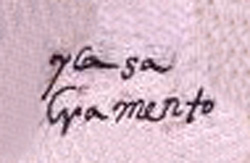 y casa
Gramento